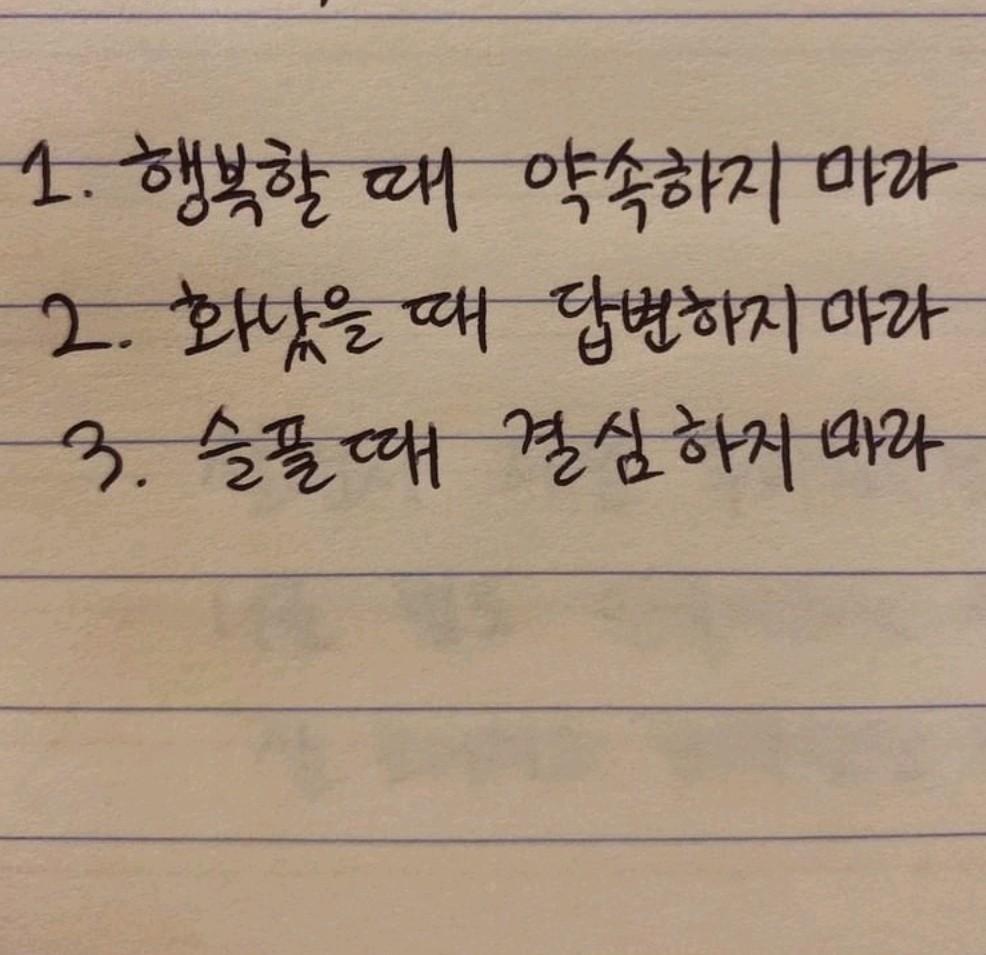 1. 행복할 때 약속하지 마라
2. 화났을 때 답변하지 마라
3. 슬플 때 결심하지 마라